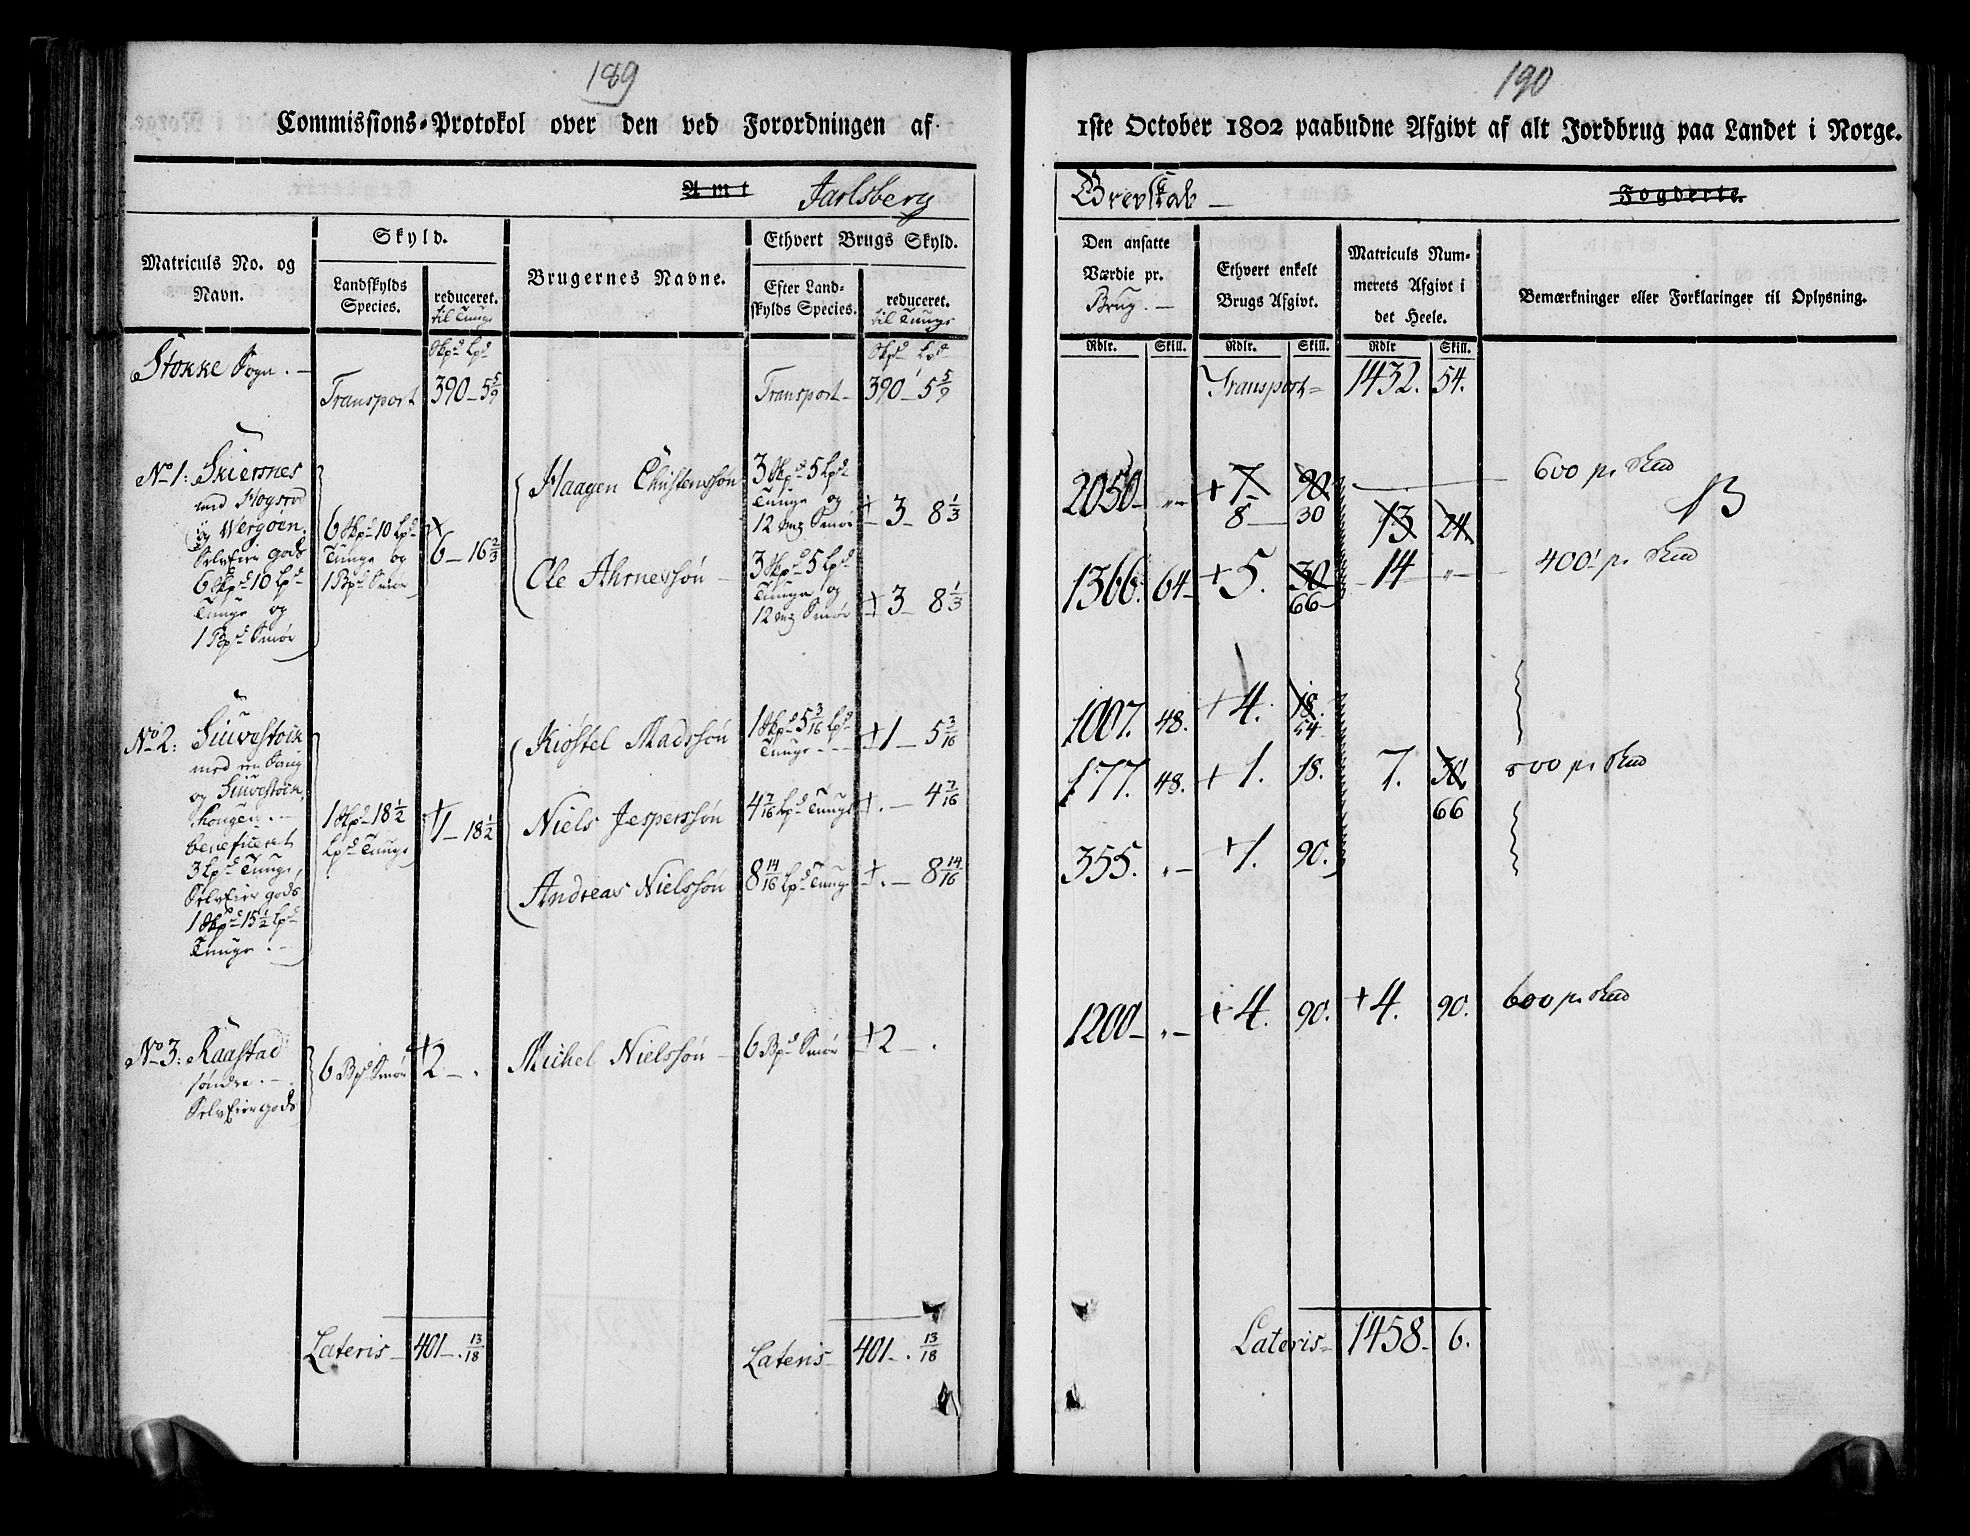 189
Commissions-Protokol over den ved Forordningen af
Amt Jarlsberg
Matriculs No. og Navn.
Skyld.
Landskylds Species.
reduceret. til Tunge
Brugernes Navne.
Ethvert Brugs Skyld.
Efter Landskylds Species.
reduceret. til Tunge
Stokke Sogn. —
Skpd Lpd
Skpd Lpd
Transport 390 — 5 5/9
Transport — 390 — 5 5/9
No 1: Skiersnes
med
og Vergøen,
SelvEier gods
6 Skpd 10 Lpd
Tunge og
1 Bpd Smør
6 Skpd 10 Lpd
Tunge og
1 Bpd Smør
6 — 16 2/3
Haagen Christenssøn
3 Skpd 5 Lpd
Tunge og
12 mrk Smør
+ 3 — 8 1/3
Ole Ahrnessøn —
3 Skpd 5 Lpd
Tunge og
12 mrk Smør
+ 3 — 8 1/3
No 2: Siuvestock
med en Saug
og Siuvestock
beneficeret
3 Lpd Tunge,
SelvEier gods
1 Skpd 15 1/2 Lpd
Tunge. —
1 Skpd 18 1/2
Lpd Tunge
+ 1 — 18 1/2
Kiøstel Madssøn
1 Skpd 5 3/16 Lpd
Tunge. —
+ 1 — 5 3/16
Niels Jesperssøn
4 7/16 Lpd Tunge
+ . — 4 7/16
Andreas Nielssøn
8 14/16 Lpd Tunge
+ . — 8 14/16
No 3: Raastad
søndre. —
SelvEiergods
6 Bpd Smør
+ 2 — .
Michel Nielssøn —
6 Bpd Smør
+ 2 — .
Lateris — 401 — . 13/18
Lateris — 401 — . 13/18
190
1ste October 1802 paabudne Afgivt af alt Jordbrug paa Landet i Norge.
Grevskab —
Fogderie.
Den ansatte Værdie pr. Brug. —
Ethvert enkelt Brugs Afgivt.
Matriculs Nummerets Afgivt i det Heele.
Bemærkninger eller Forklaringer til Oplysning.
Rdlr. Skill. Rdlr. Skill. Rdlr Skill.
Transport — 1432. 54.
2050 — „ — + 7 90. 600 pr Skd
8 — 30 13 24
1366. 64 — + 5. 30 14 „ — 400 pr Skd
66
1007. 48. + 4. 18.
54
177. 48. + 1. 18. 7. 30 800 pr Skd
66
355. „ — + 1. 90.
1200 — „ — + 4. 90. + 4. 90. 600 pr Skd
Lateris — 1458 — 6.